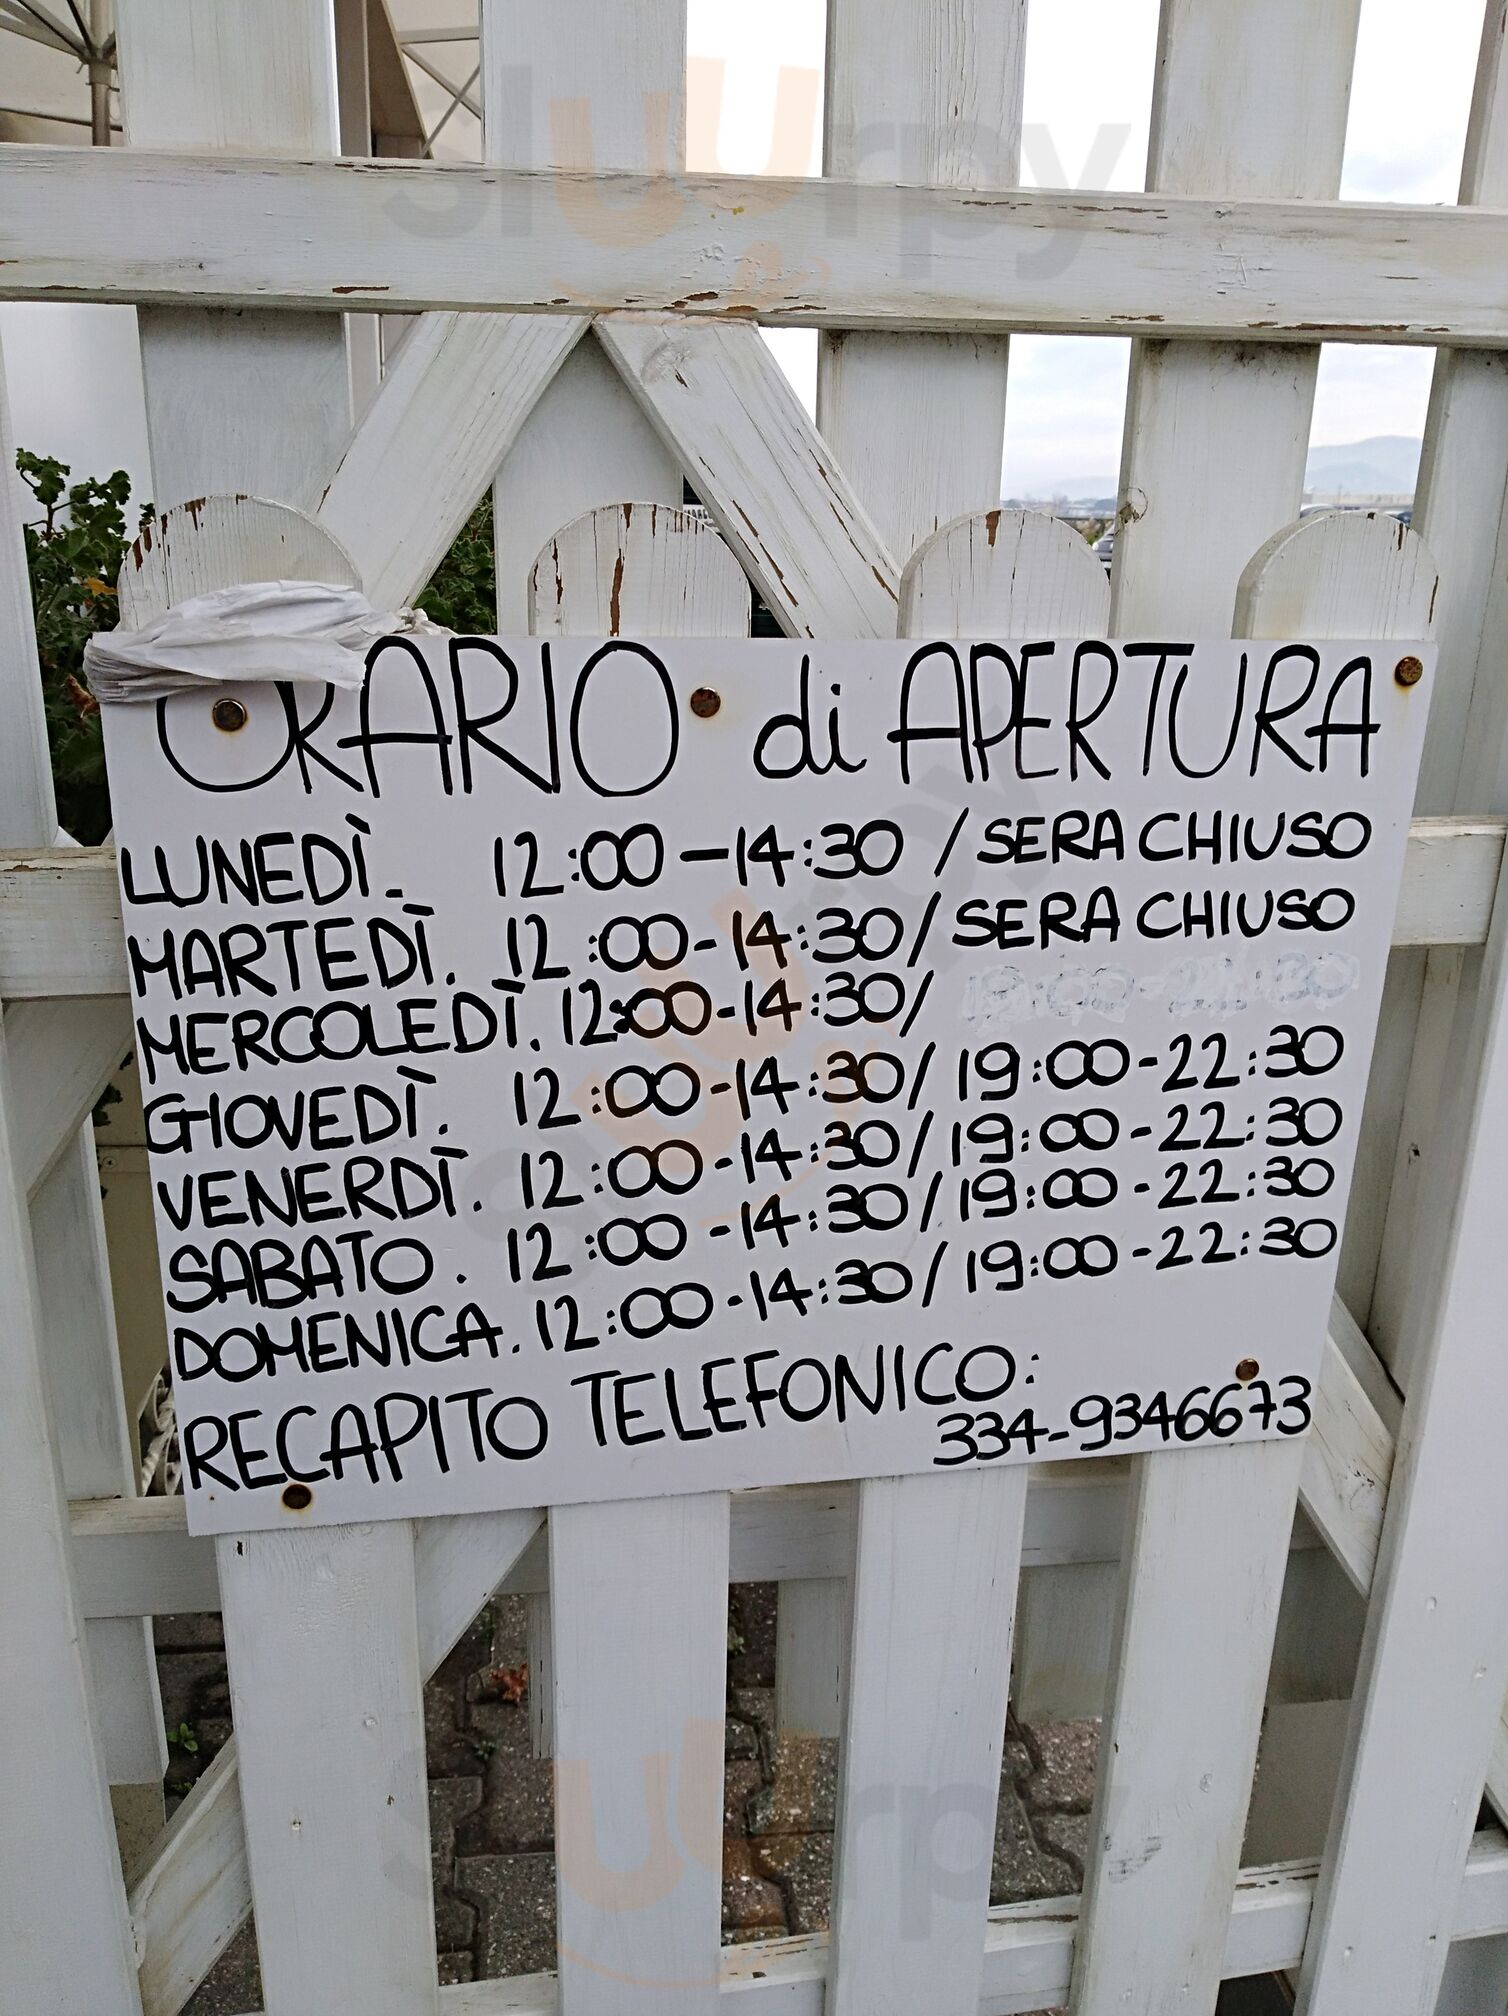 sluurpy
ORARIO di APERTURA
LUNEDÌ. 12:00-14:30 / SERA CHIUSO
MARTEDÌ. 12:00-14:30 / SERA CHIUSO
MERCOLEDÌ. 12:00-14:30/
GIOVEDÌ. 12:00-14:30/ 19:00-22:30
VENERDÌ. 12:00-14:30/ 19:00-22:30
SABATO. 12:00-14:30/ 19:00-22:30
DOMENICA. 12:00-14:30/ 19:00-22:30
RECAPITO TELEFONICO:
334-9346673
sluurpy